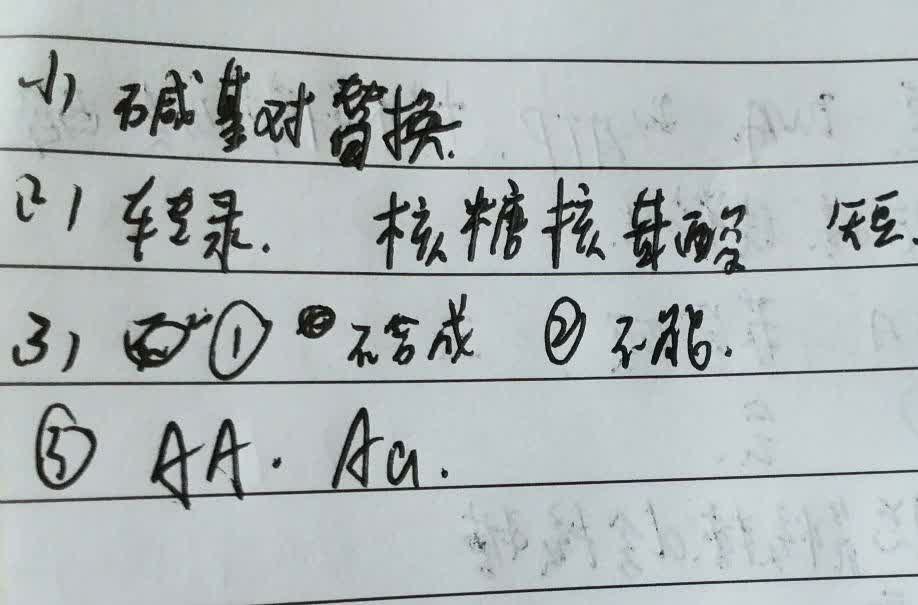 (1) 碱基对替换.
(2) 转录. 核糖核苷酸 短.
(3) ① 不合成 ② 不能.
③ AA. Aa.